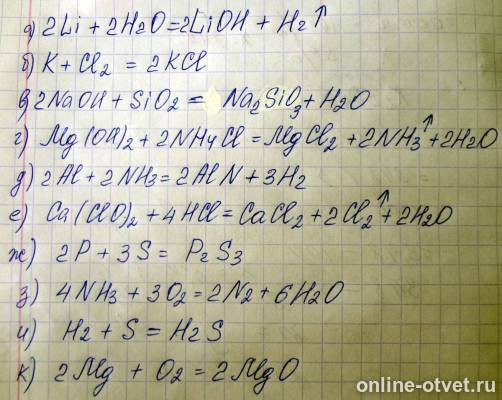 а) 2Li + 2H₂O = 2LiOH + H₂↑
б) K + Cl₂ = 2KCl
в) 2NaOH + SiO₂ = Na₂SiO₃ + H₂O
г) Mg(OH)₂ + 2NH₄Cl = MgCl₂ + 2NH₃↑ + 2H₂O
д) 2Al + 2NH₃ = 2AlN + 3H₂
е) Ca(ClO)₂ + 4HCl = CaCl₂ + 2Cl₂↑ + 2H₂O
ж) 2P + 3S = P₂S₃
з) 4NH₃ + 3O₂ = 2N₂ + 6H₂O
и) H₂ + S = H₂S
к) 2Mg + O₂ = 2MgO
online-otvet.ru